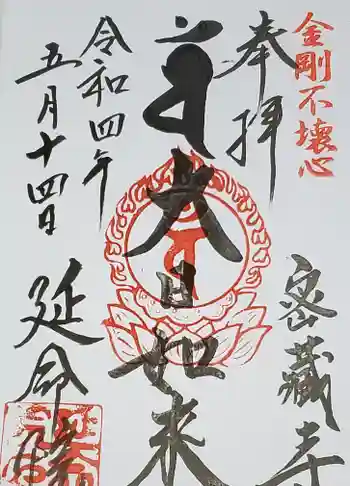 金剛不壊心
奉拝
密蔵寺
大日如来
令和四年
五月十四日
延命